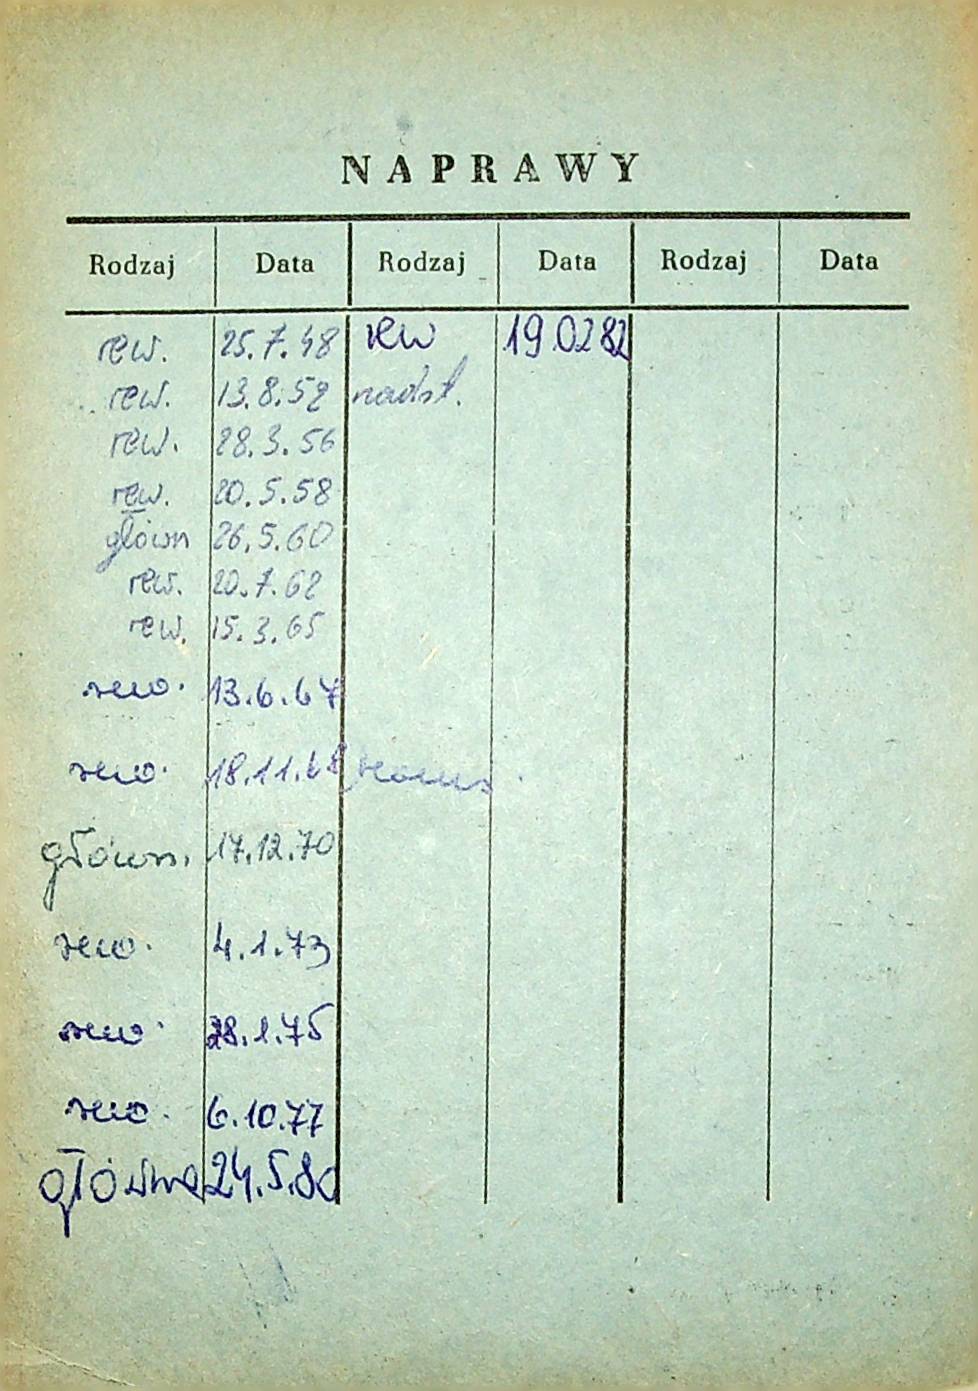 NAPRAWY
Rodzaj Data Rodzaj Data Rodzaj Data
rew. 25.7.48 rew 19.02 82
rew. 13.8.52 nadst.
rew. 28.3.56
rew. 20.5.58
główn 26.5.60
rew. 20.7.62
rew. 15.3.65
rew. 13.6.67
rew. 18.11.68
główn. 17.12.70
rew. 4.1.73
rew. 28.1.75
rew. 6.10.77
główna 24.5.80